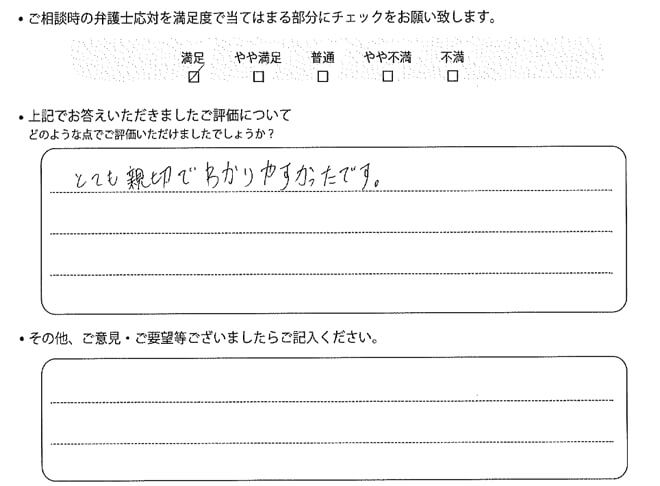 ・ご相談時の弁護士応対を満足度で当てはまる部分にチェックをお願い致します。
満足 やや満足 普通 やや不満 不満
☑ □ □ □ □
・上記でお答えいただきましたご評価について
どのような点でご評価いただけましたでしょうか？
とても親切でわかりやすかったです。
・その他、ご意見・ご要望等ございましたらご記入ください。